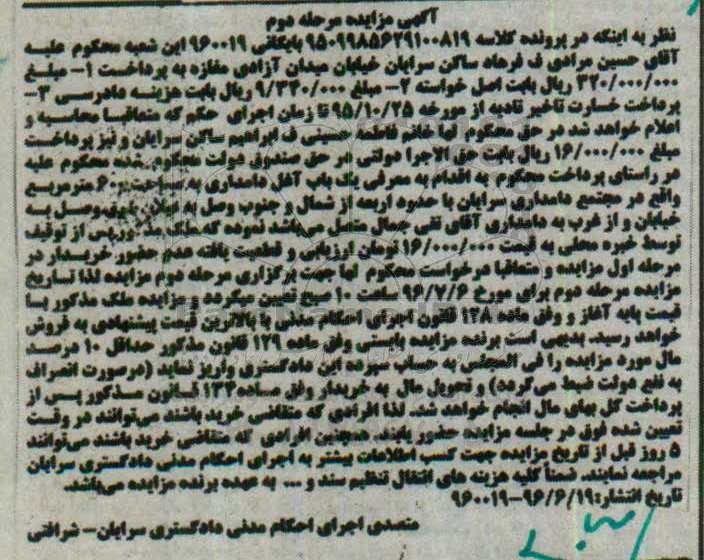 آگهی مزایده مرحله دوم
نظر به اینکه در پرونده کلاسه ۹۵۰۹۹۸۵۶۲۹۱۰۰۸۱۹ بایگانی ۹۶۰۰۱۹ این شعبه محکوم علیه
آقای حسین مرادی ف فرهاد ساکن سرایان خیابان میدان آزادی مغازه به پرداخت ۱- مبلغ
۳۲۰/۰۰۰/۰۰۰ ریال بابت اصل خواسته ۲- مبلغ ۹/۳۳۰/۰۰۰ ریال بابت هزینه دادرسی ۳-
پرداخت خسارت تاخیر تادیه از مورخه ۹۵/۱۰/۲۵ تا زمان اجرای حکم که متعاقبا محاسبه و
اعلام خواهد شد در حق محکوم لها خانم فاطمه حسینی ف ابراهیم ساکن سرایان و نیز پرداخت
مبلغ ۱۶/۰۰۰/۰۰۰ ریال بابت حق الاجرا دولتی در حق صندوق دولت محکوم شده محکوم علیه
در راستای پرداخت محکوم به اقدام به معرفی یک باب آغل دامداری به مساحت ۶۰۰ مترمربع
واقع در مجتمع دامداری سرایان با حدود اربعه از شمال و جنوب وصل به شرق وصل به
خیابان و از غرب به دامداری آقای تقی جمال متصل می‌باشد نموده که ملک مذکور پس از توقیف
توسط خبره محلی به قیمت ۱۶/۰۰۰/۰۰۰ تومان ارزیابی و قطعیت یافته عدم حضور خریدار در
مرحله اول مزایده و متعاقبا درخواست محکوم لها جهت برگزاری مرحله دوم مزایده لذا تاریخ
مزایده مرحله دوم برای مورخ ۹۶/۷/۶ ساعت ۱۰ صبح تعیین میگردد و مزایده ملک مذکور با
قیمت پایه آغاز و وفق ماده ۱۲۸ قانون اجرای احکام مدنی با بالاترین قیمت پیشنهادی به فروش
خواهد رسید. بدیهی است برنده مزایده بایستی وفق ماده ۱۲۹ قانون مذکور حداقل ۱۰ درصد
مال مورد مزایده را فی المجلس به حساب سپرده این دادگستری واریز نماید (درصورت انصراف
به نفع دولت ضبط می‌گردد) و تحویل مال به خریدار وفق ماده ۱۳۴ قانون مذکور پس از
پرداخت کل بهای مال انجام خواهد شد. لذا افرادی که متقاضی خرید باشند می‌توانند در وقت
تعیین شده فوق در جلسه مزایده حضور یابند. همچنین افرادی که متقاضی خرید باشند می‌توانند
۵ روز قبل از تاریخ مزایده جهت کسب اطلاعات بیشتر به اجرای احکام مدنی دادگستری سرایان
مراجعه نمایند. ضمناً کلیه هزینه های انتقال تنظیم سند و ... به عهده برنده مزایده می‌باشد.
تاریخ انتشار: ۹۶/۶/۱۹-۹۶۰۰۱۹
متصدی اجرای احکام مدنی دادگستری سرایان- شرافتی